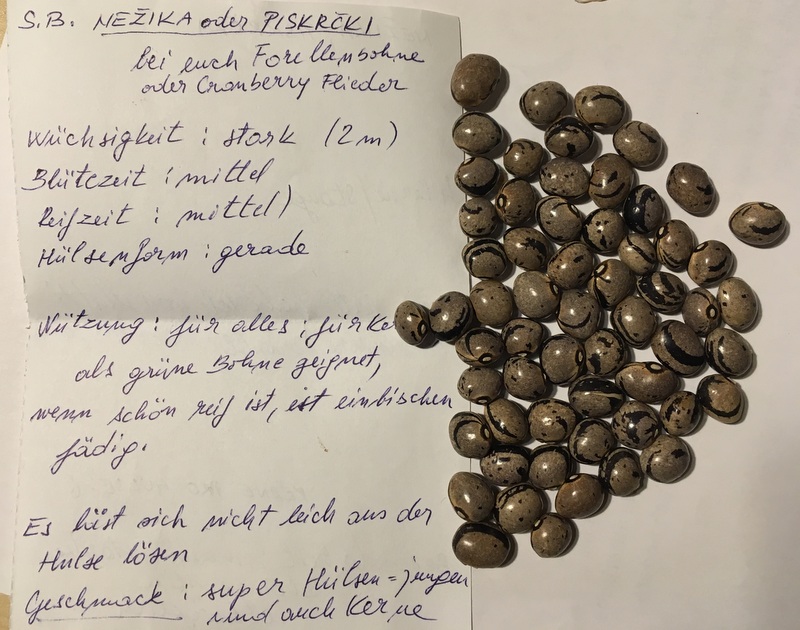 S.B. NEŽIKA oder PISKRČKI
bei euch Forellenbohne
oder Cranberry Flieder
Wüchsigkeit : stark (2m)
Blütezeit : mittel
Reifzeit : mittel)
Hülsenform : gerade
Nützung : für alles ; für Ke
als grüne Bohne zeignet,
wenn schön reif ist, ist einbischen
fädig.
Es läst sich nicht leich aus der
Hulse lösen
Geschmack : super Hülsen = jungen
und auch Kerne